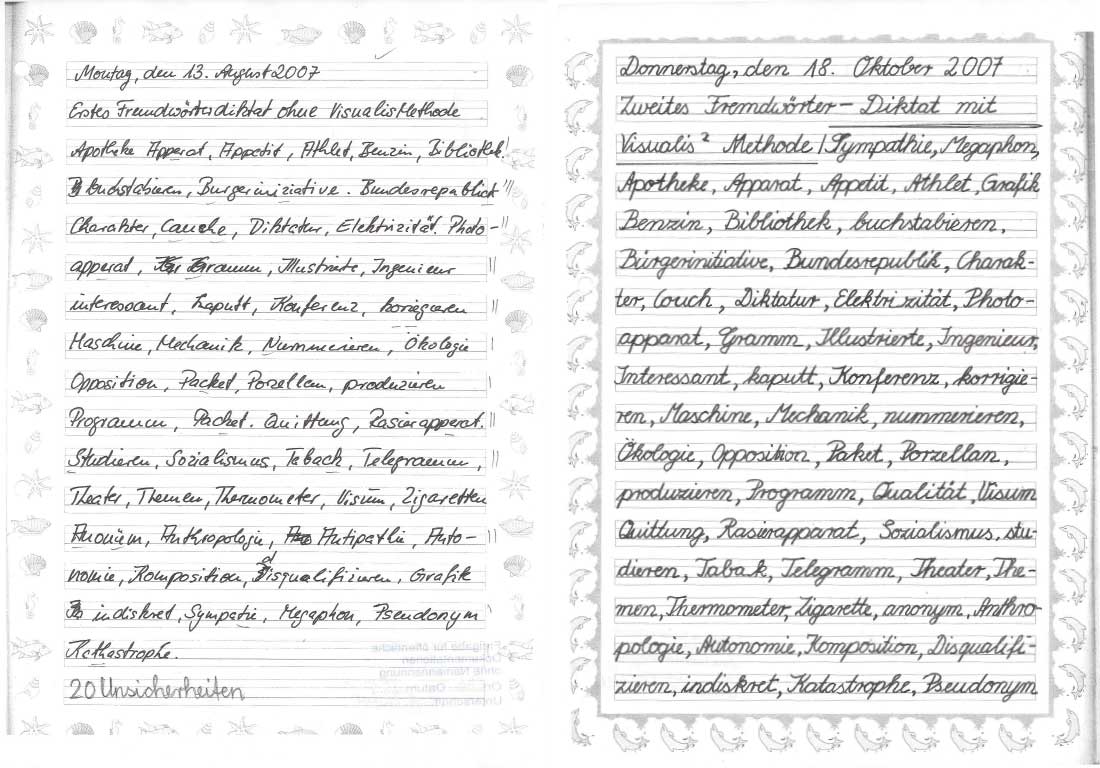 Montag, den 13. August 2007
Erstes Fremdwörterdiktat ohne Visualis Methode
Apotheke Apperat, Appetit, Athlet, Benzin, Bibliothek.
buchstabieren, Burgeriniziative. Bundesrepublick
Charakter, Cauche, Diktatur, Elektrizität. Photo-
apperat, Gramm, Illustrirte, Ingenieur
interessant, kaputt, Konferenz, koriegieren
Maschine, Mechanik, Nummerieren, Ökologie
Opposition, Packet, Porzellan, produzieren
Programm, Packet. Quittung, Rasierapperat.
Studieren, Sozialismus, Taback, Telegramm,
Theater, Themen, Thermometer, Visum, Zigaretten
Anonüm, Anthropologie, Antipathie, Auto-
nomie, Komposition, disqualifizieren, Grafik
indiskret, Sympatie, Megaphon, Pseudonym
Kathastrophe.
20 Unsicherheiten
Donnerstag, den 18. Oktober 2007
Zweites Fremdwörter – Diktat mit
Visualis² Methode / Sympathie, Megaphon,
Apotheke, Apparat, Appetit, Athlet, Grafik
Benzin, Bibliothek, buchstabieren,
Bürgerinitiative, Bundesrepublik, Charak-
ter, Couch, Diktatur, Elektrizität, Photo-
apparat, Gramm, Illustrierte, Ingenieur,
Interessant, kaputt, Konferenz, korrigie-
ren, Maschine, Mechanik, nummerieren,
Ökologie, Opposition, Paket, Porzellan,
produzieren, Programm, Qualität, Visum
Quittung, Rasierapparat, Sozialismus, stu-
dieren, Tabak, Telegramm, Theater, The-
men, Thermometer, Zigarette, anonym, Anthro-
pologie, Autonomie, Komposition, Disqualifi-
zieren, indiskret, Katastrophe, Pseudonym